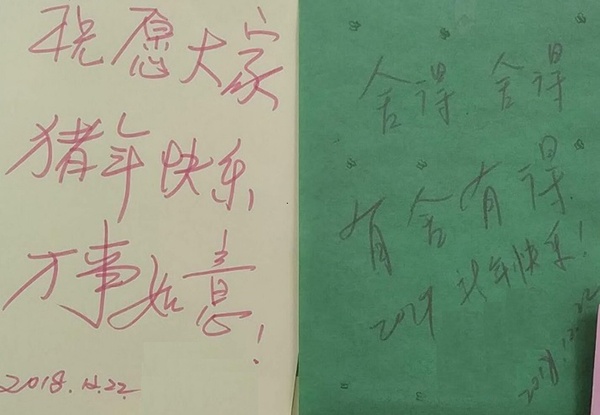 祝愿大家
猪年快乐
万事如意!
2018.12.22
舍得 舍得
有舍有得
2019 新年快乐!
2018.12.22